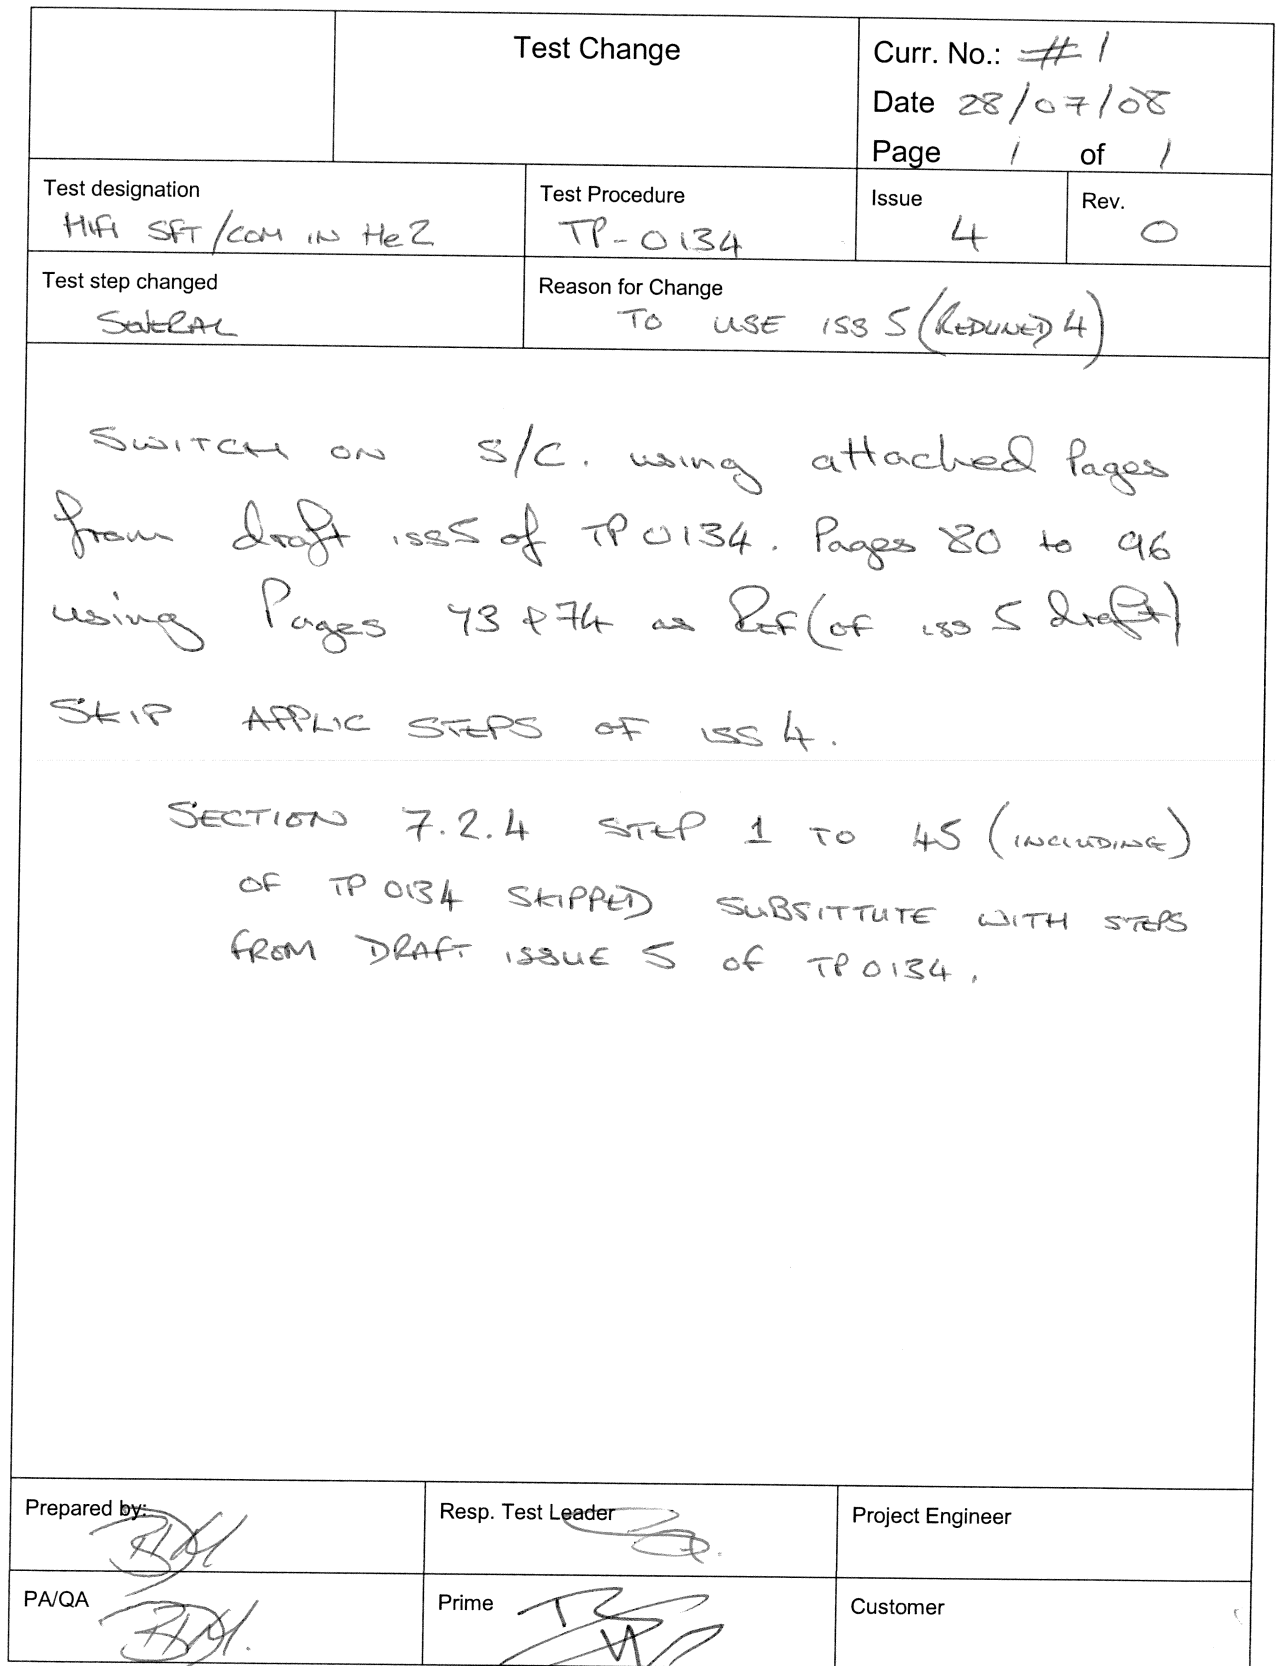 Test Change
Curr. No.: #1
Date 28/07/08
Page 1 of 1
Test designation
HIFI SFT/COM IN He2
Test Procedure
TP-0134
Issue
4
Rev.
0
Test step changed
SEVERAL
Reason for Change
TO USE ISS 5 (REDLINED 4)
SWITCH ON S/C. using attached Pages
from draft iss5 of TP 0134. Pages 80 to 96
using Pages 73 & 74 as Ref (of iss 5 draft)
SKIP APPLIC STEPS OF ISS 4.
SECTION 7.2.4 STEP 1 TO 45 (INCLUDING)
OF TP 0134 SKIPPED SUBSITTUTE WITH STEPS
FROM DRAFT ISSUE 5 OF TP 0134.
Prepared by:
Resp. Test Leader
Project Engineer
PA/QA
Prime
Customer